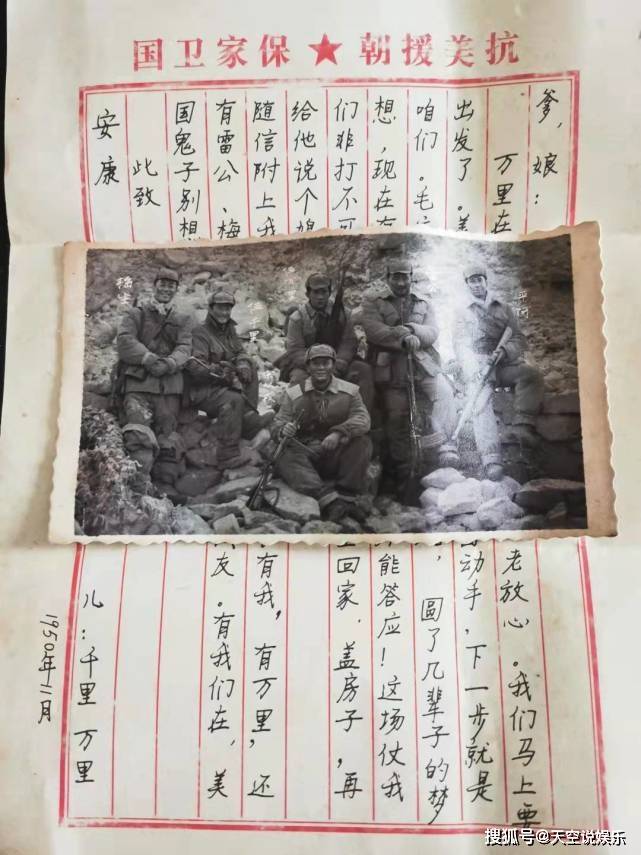 抗美援朝★保家卫国
爹，娘：
万里在 老放心。我们马上要
出发了。美 动手，下一步就是
咱们。毛 ，圆了几辈子的梦
想，现在 能答应！这场仗我
们非打不可 回家，盖房子，再
给他说个媳
随信附上我 有我，有万里，还
有雷公、梅 友。有我们在，美
国鬼子别想
此致
安康
儿：千里 万里
1950年11月
梅生
平河
搜狐号@天空说娱乐